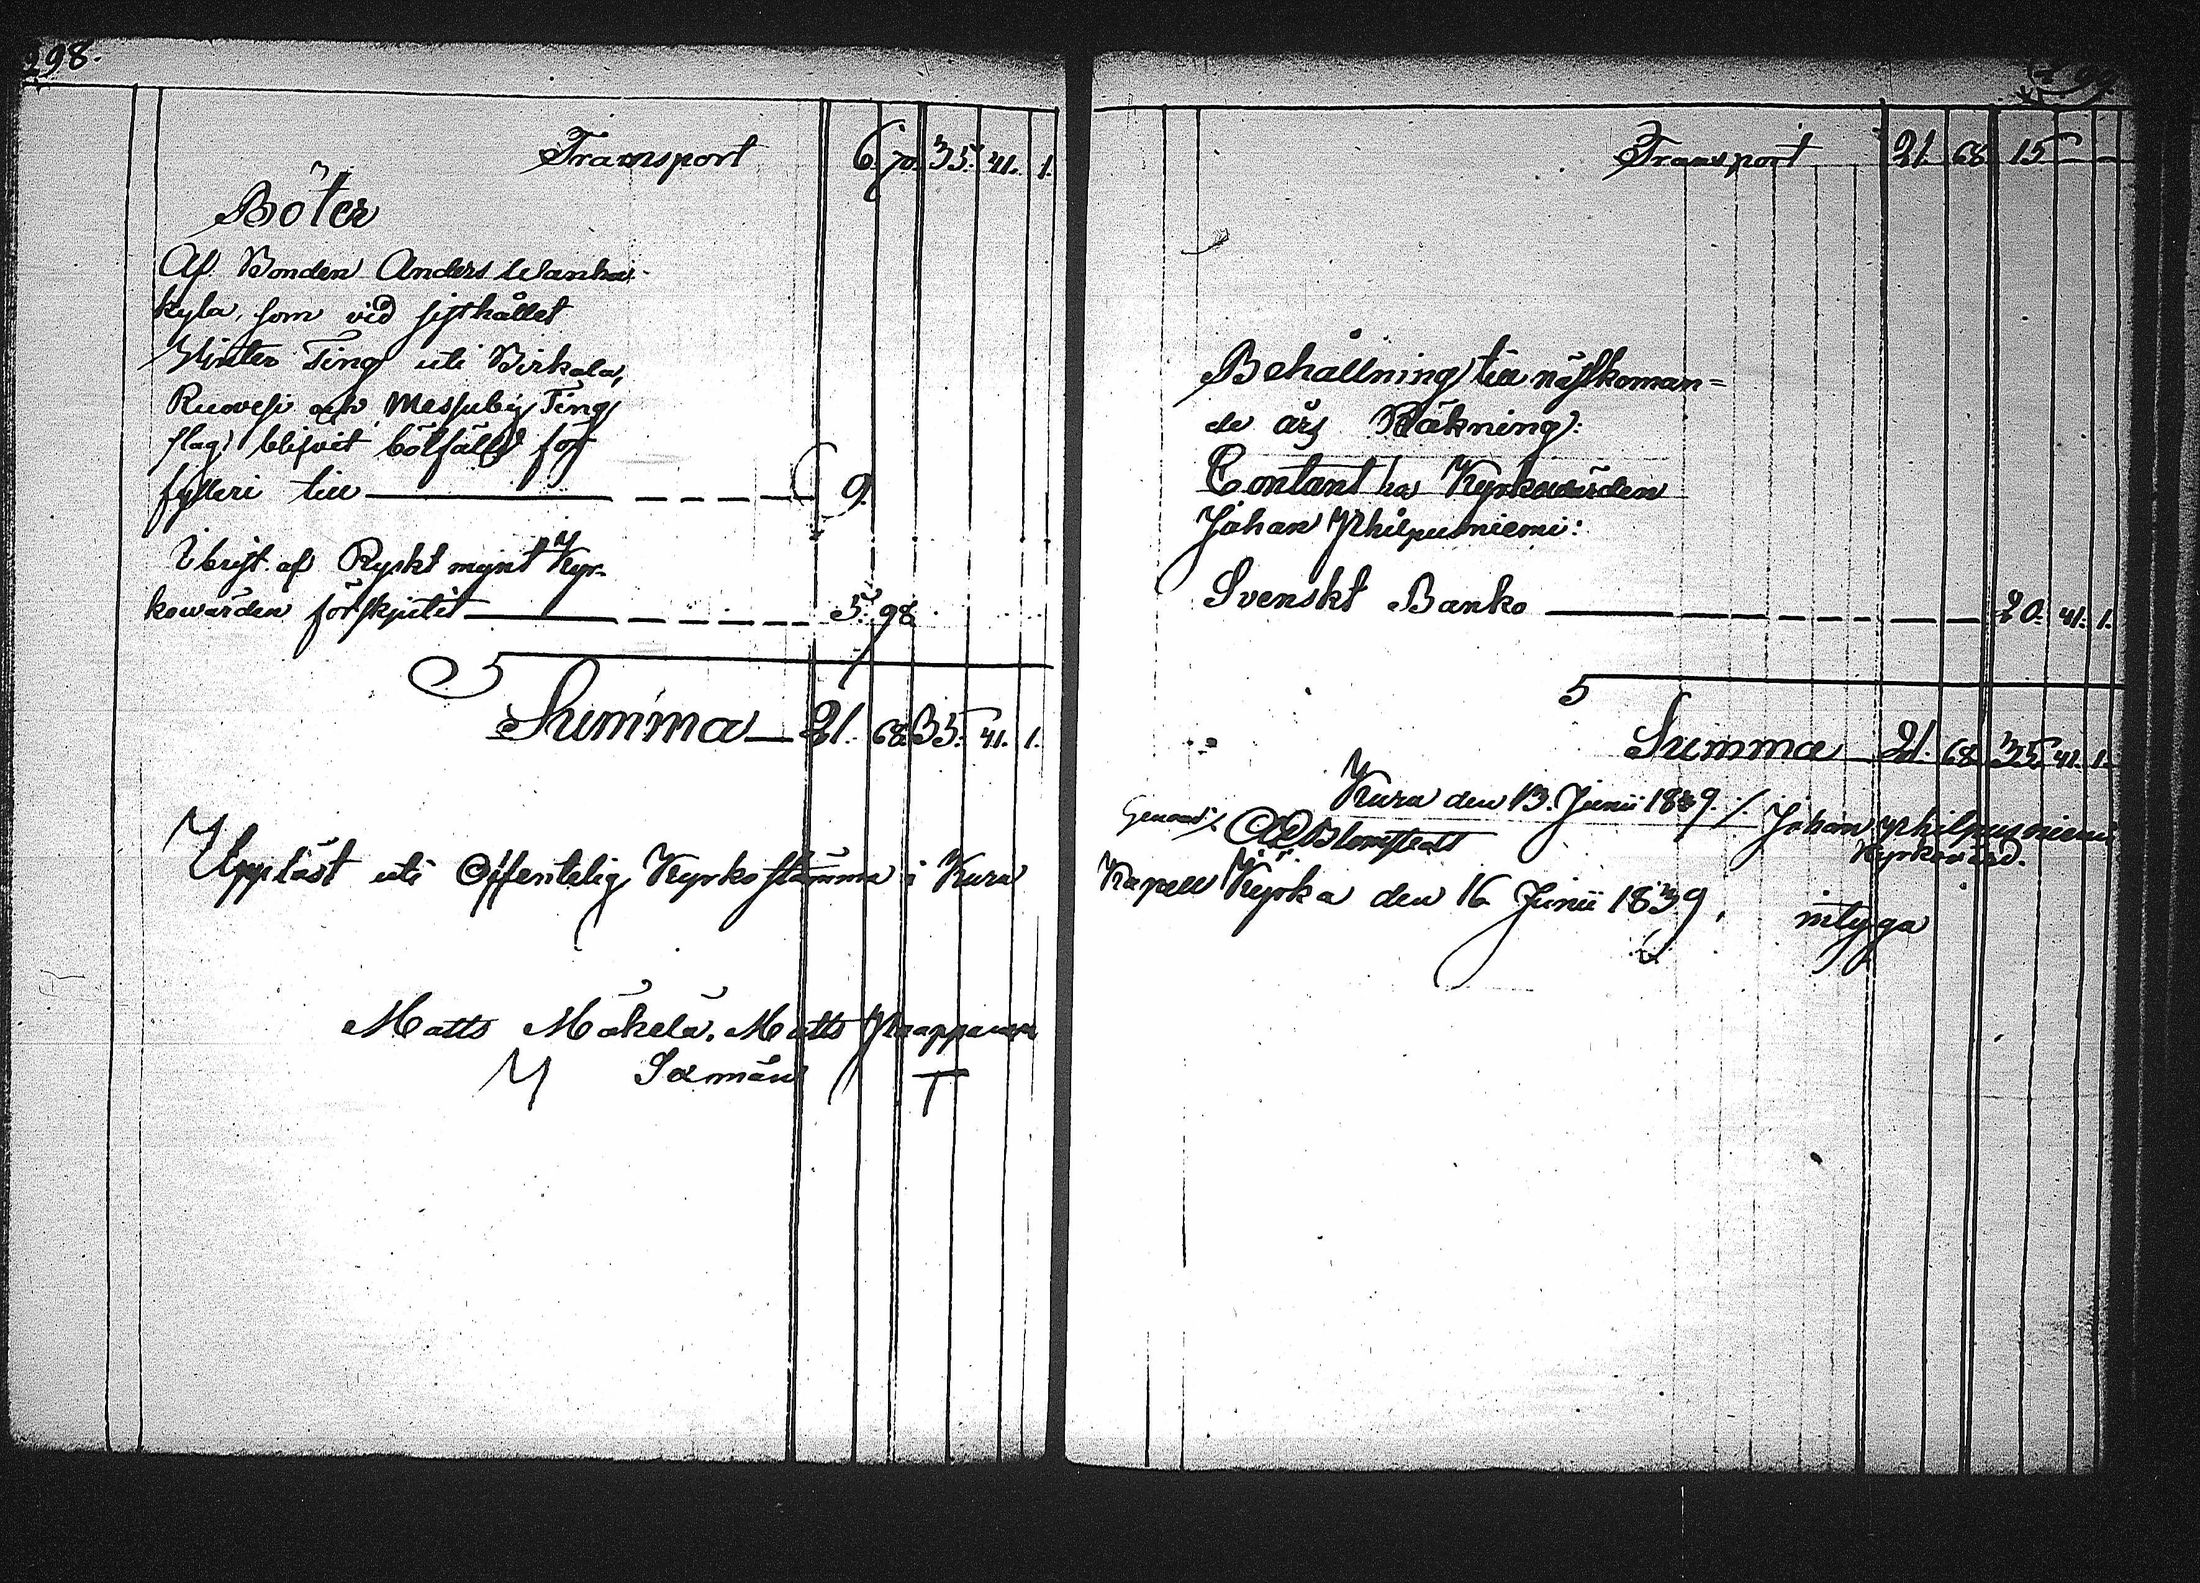 298.
Transport 6. 70. 35. 41. 1.
Böter
Af Bonden Anders Wanha-
kyla, som vid sisthållet
Winter Ting uti Birkala,
Ruovesi och Messuby Ting
slag blifvit bötfälld för
fylleri till 9.
I brist af Ryskt mynt Kyr-
kowärden förskjutit 5. 98
Summa 21. 68. 35. 41. 1.
Uppläst uti Offentelig Kyrkostämma i Kuru
Matts Mäkelä. Matts
Sexmän
299
Transport 21. 68. 15
Behållning till nästkoman=
de års Räkning:
Contant hos Kyrkowärden
Johan Philpusniemi:
Svenskt Banko 20. 41. 1.
Summa 21. 68. 35. 41. 1.
Kuru den 13. Junii 1839. /. Johan Philpusniemi
Blomstedt Kyrkowärd.
Kapell Kyrka den 16 Junii 1839, intyga